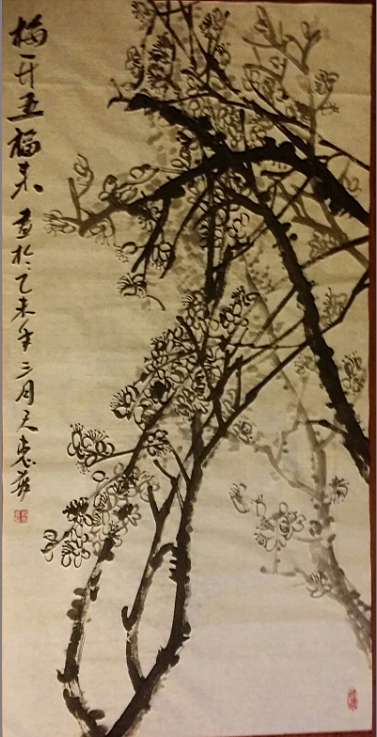 梅开五福来 画於乙未年三月天